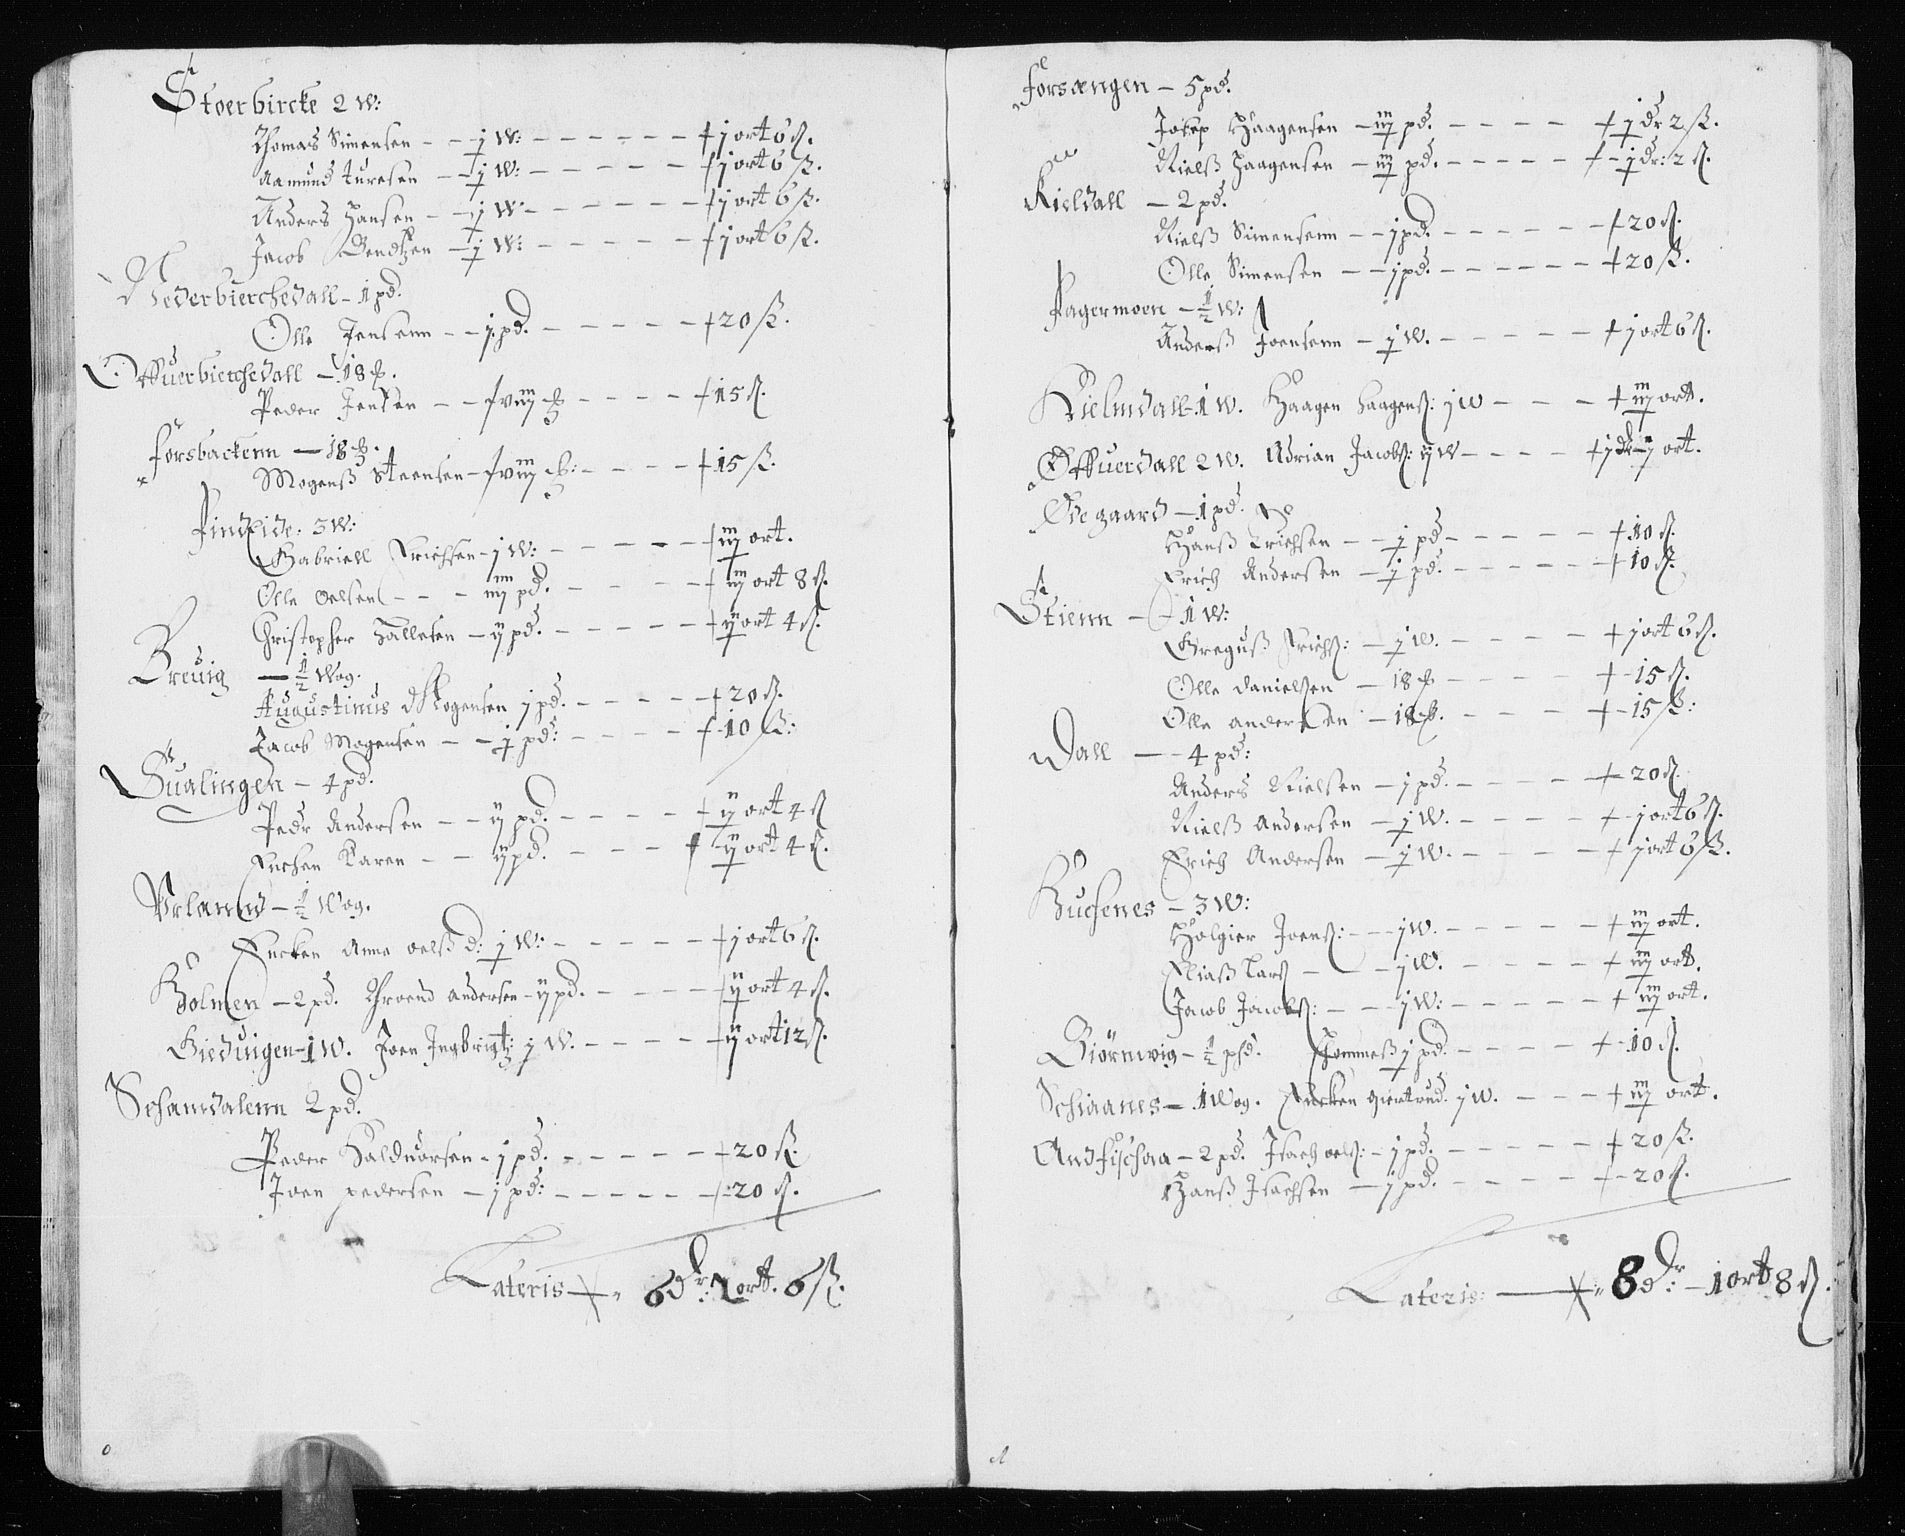 Stoerbircke 2 W:
Thomas Simensen - - j W: - - - - - - + j ort 6 ß.
Aamund turesen - - j W: - - - - - - + j ort 6 ß.
Anders Hansen - - j W - - - - - - + j ort 6 ß.
Jacob Bendtzen - j W: - - - - - + j ort 6 ß.
Nederbierchedall - 1 pd.
Olle Jensenn - - j pd. - - - - - + 20 ß.
Offuerbierchedall - 18
Peder Jensen - - xviij - - - - + 15 ß.
Forsbackenn - 18
Mogenß Steensen - xviij - - - - + 15 ß.
Findeide: 3 W:
Gabriell Erichsen - j W: - - - - - + iij ort.
Olle oelsen - - - iiij pd. - - - - - + iij ort 8 ß.
Christopher Hallesen - ij pd. - - - - - + ij ort 4 ß.
Breuig - ½ Wog.
Augustinus Mogensen j pd. - - - - + 20 ß.
Jacob Mogensen - - j pd: - - - - + 10 ß:
Sualingen - 4 pd.
Pedr Andersen - - ij pd. - - - - - + ij ort 4 ß
Enchen Karen - - ij pd. - - - + ij ort 4 ß.
Vrlannd - ½ Wog.
Encken Anne oelß d: j W: - - - - - + j ort 6 ß.
Holmen - 2 pd. Throend andersen - ij pd. - - - - + ij ort 4 ß.
Gieduigen - 1 W. Joen Ingbrigtß: j W. - - - - - + ij ort 12 ß.
Schamdalenn 2 pd.
Peder Halduorsen - j pd. - - - - - + 20 ß.
Joen pedersen - j pd: - - - - - + 20 ß.
Lateris 6 dr: 1 ort. 6 ß.
Forsængen - 5 pd.
Josep Haagensen - iij pd. - - - - + j dr 2 ß.
Nielß Haagensen - iij pd. - - - - - + j dr: 2 ß.
Kieldall - 2 pd.
Nielß Simensenn - j pd. - - - - - + 20 ß.
Olle Simensen - - j pd. - - - - - + 20 ß.
Fagermoen - ½ W:
Anderß Joensenn - j W. - - - - - + j ort 6 ß.
Hielmdall - 1 W. Haagen haagenß: j W - - - + iij ort.
Offuerdall 2 W. Adrian Jacobß: ij W - - - - + j dr ij ort.
Ødegaard - 1 pd.
Hanß Erichsen - - j pd - - - - - + 10 ß.
Erich Andersen - j pd. - - - - - + 10 ß.
Stienn - 1 W:
Greguß Erichß: - j W. - - - - + j ort 6 ß.
Olle danielsen - 18 - - - - + 15 ß.
Olle andersen - 18 - - - - + 15 ß:
Dall - - 4 pd:
Anders Nielsen - j pd. - - - - + 20 ß.
Nielß Andersen - j W. - - - - - + j ort 6 ß.
Erich Andersen - j W. - - - - - + j ort 6 ß.
Husenes - 3 W:
Holgier Joenß: - - j W. - - - - - + iij ort.
Eliaß Larß - - j W. - - - - - + iij ort.
Jacob Jacobß: - - j W: - - - - - + iij ort.
Biörnwig - ½ pd. Thommeß j pd. - - - - + 10 ß.
Schiaanes - 1 Wog. Encken giertrud. j W. - - - + iij ort.
Andfischaa - 2 pd. Isach oelß: - j pd. - - - - - + 20 ß.
Hanß Isachsen - j pd. - - - - - + 20 ß.
Lateris: 8 dr: - 1 ort 8 ß.